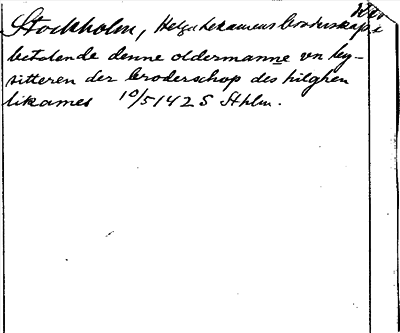 Stockholm, Helga Lekamens broderskap
betalende denne oldermanne vn bey-
sitteren der broderschop des hilghen
likames 10/5 1425 Sthlm.